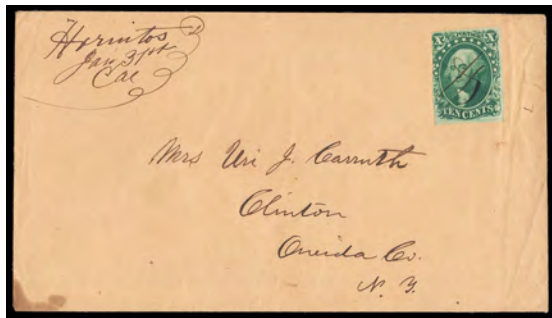 Hornitos
Jan 31st
Cal
X X
TEN CENTS
Mrs Uri J. Carruth
Clinton
Oneida Co.
N. Y.